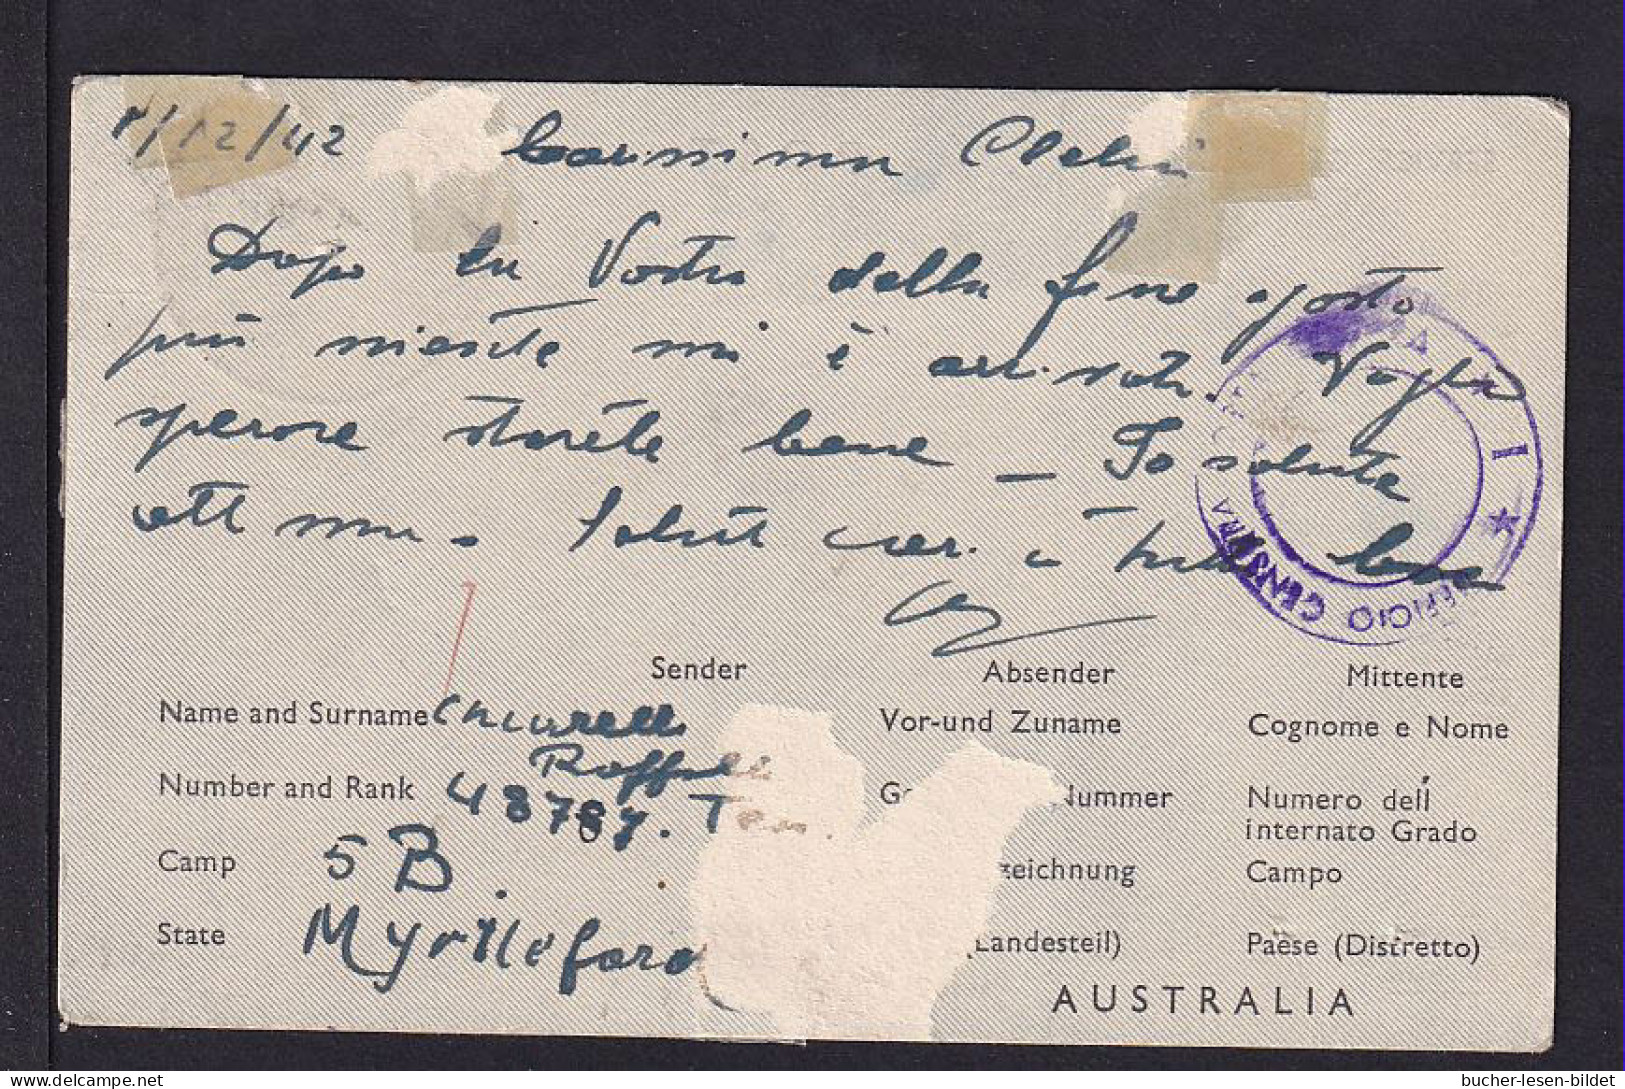 /12/42 Carissima
Dopo la Vostra della fine agosto
più niente mi è arrivato. Voglio
sperare starete bene - Io salute
ottima. Saluti cari a tutti
Sender Absender Mittente
Name and Surname Chiarelli Vor-und Zuname Cognome e Nome
Raffaele
Number and Rank 48787. Ten. Nummer Numero dell
internato Grado
Camp 5 B. zeichnung Campo
State Myrtleford Landesteil) Paese (Distretto)
AUSTRALIA
UFFICIO CENSURA POSTA
bucher-lesen-bildet